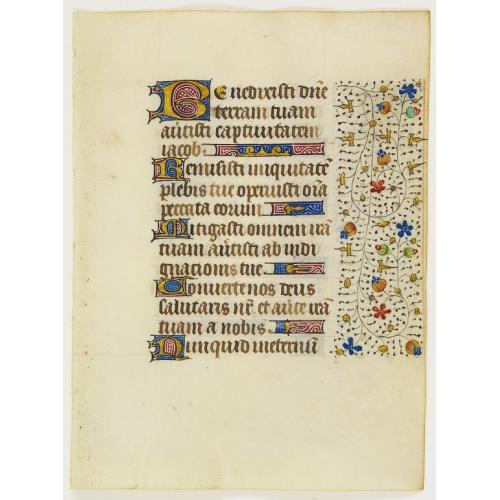 Benedixisti dn̄e
terram tuam
au̅tisti captiuitatem
iacob
Remisisti iniquitatē
plebis tue operuisti oīa
peccata eorum
Mitigasti omnem irā
tuam au̅tisti ab indi
gnacionis tue
Conuerte nos deus
salutaris nr̄ et auīte irā
tuam a nobis
Nunquid in eternū